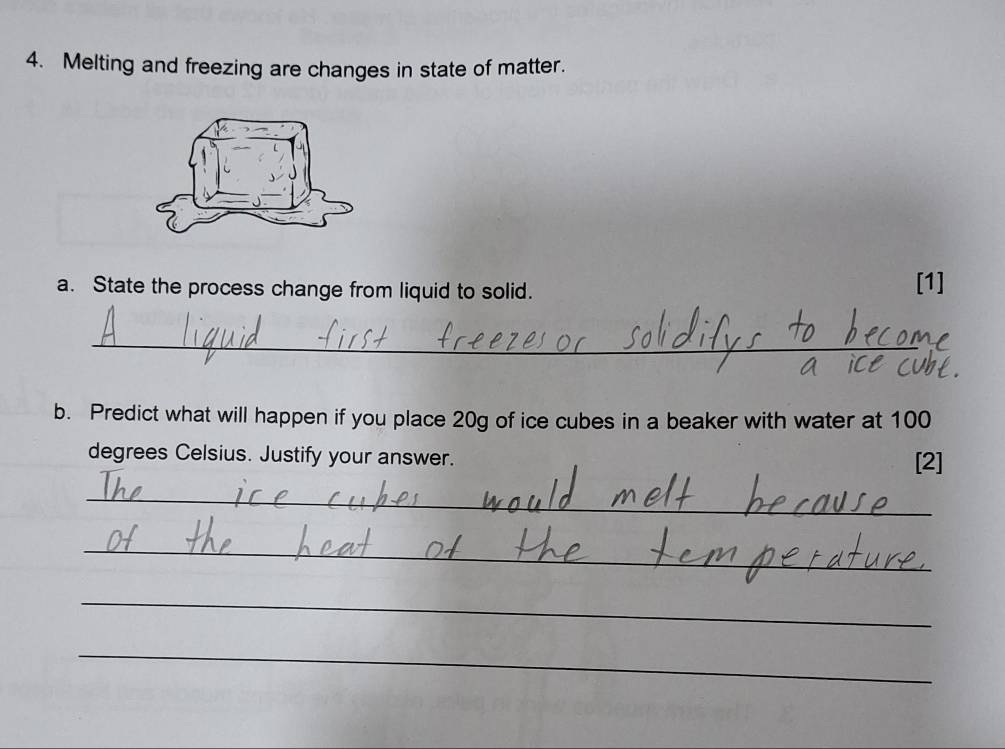 4. Melting and freezing are changes in state of matter.
a. State the process change from liquid to solid. [1]
A liquid first freezes or solidifys to become
a ice cube.
b. Predict what will happen if you place 20g of ice cubes in a beaker with water at 100
degrees Celsius. Justify your answer. [2]
The ice cubes would melt because
of the heat of the temperature.